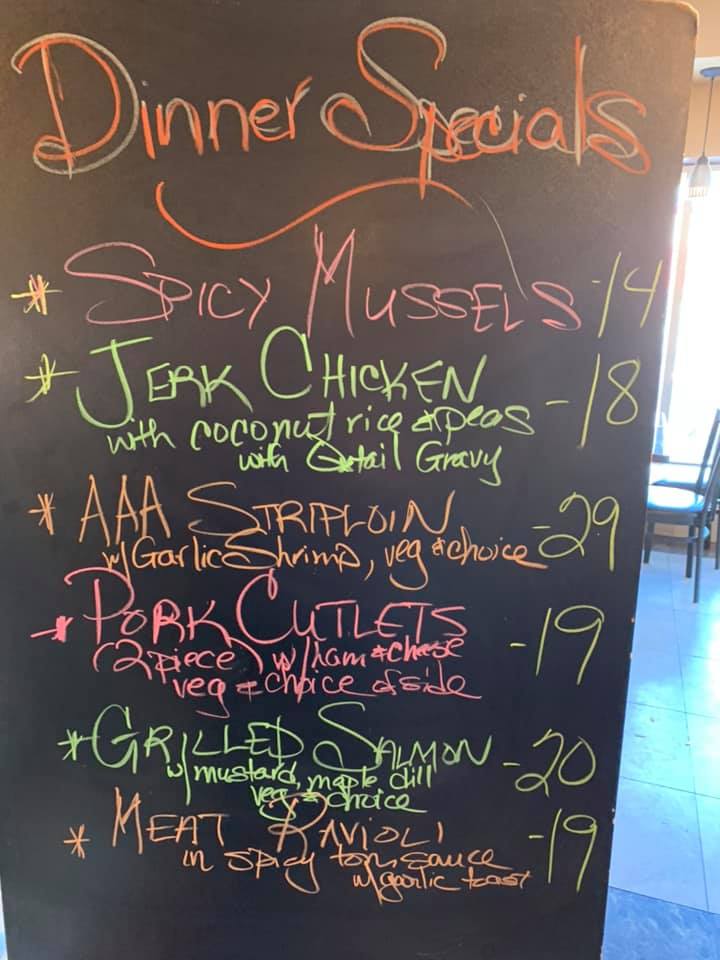 Dinner Specials
* SPICY MUSSELS -14
* JERK CHICKEN -18
with coconut rice & peas
with Oxtail Gravy
* AAA STRIPLOIN -29
w/ Garlic Shrimp, veg & choice
* PORK CUTLETS -19
(2 piece) w/ ham & cheese
veg & choice of side
* GRILLED SALMON -20
w/ mustard, maple dill
veg & choice
* MEAT RAVIOLI -19
in spicy tom sauce
w/ garlic toast